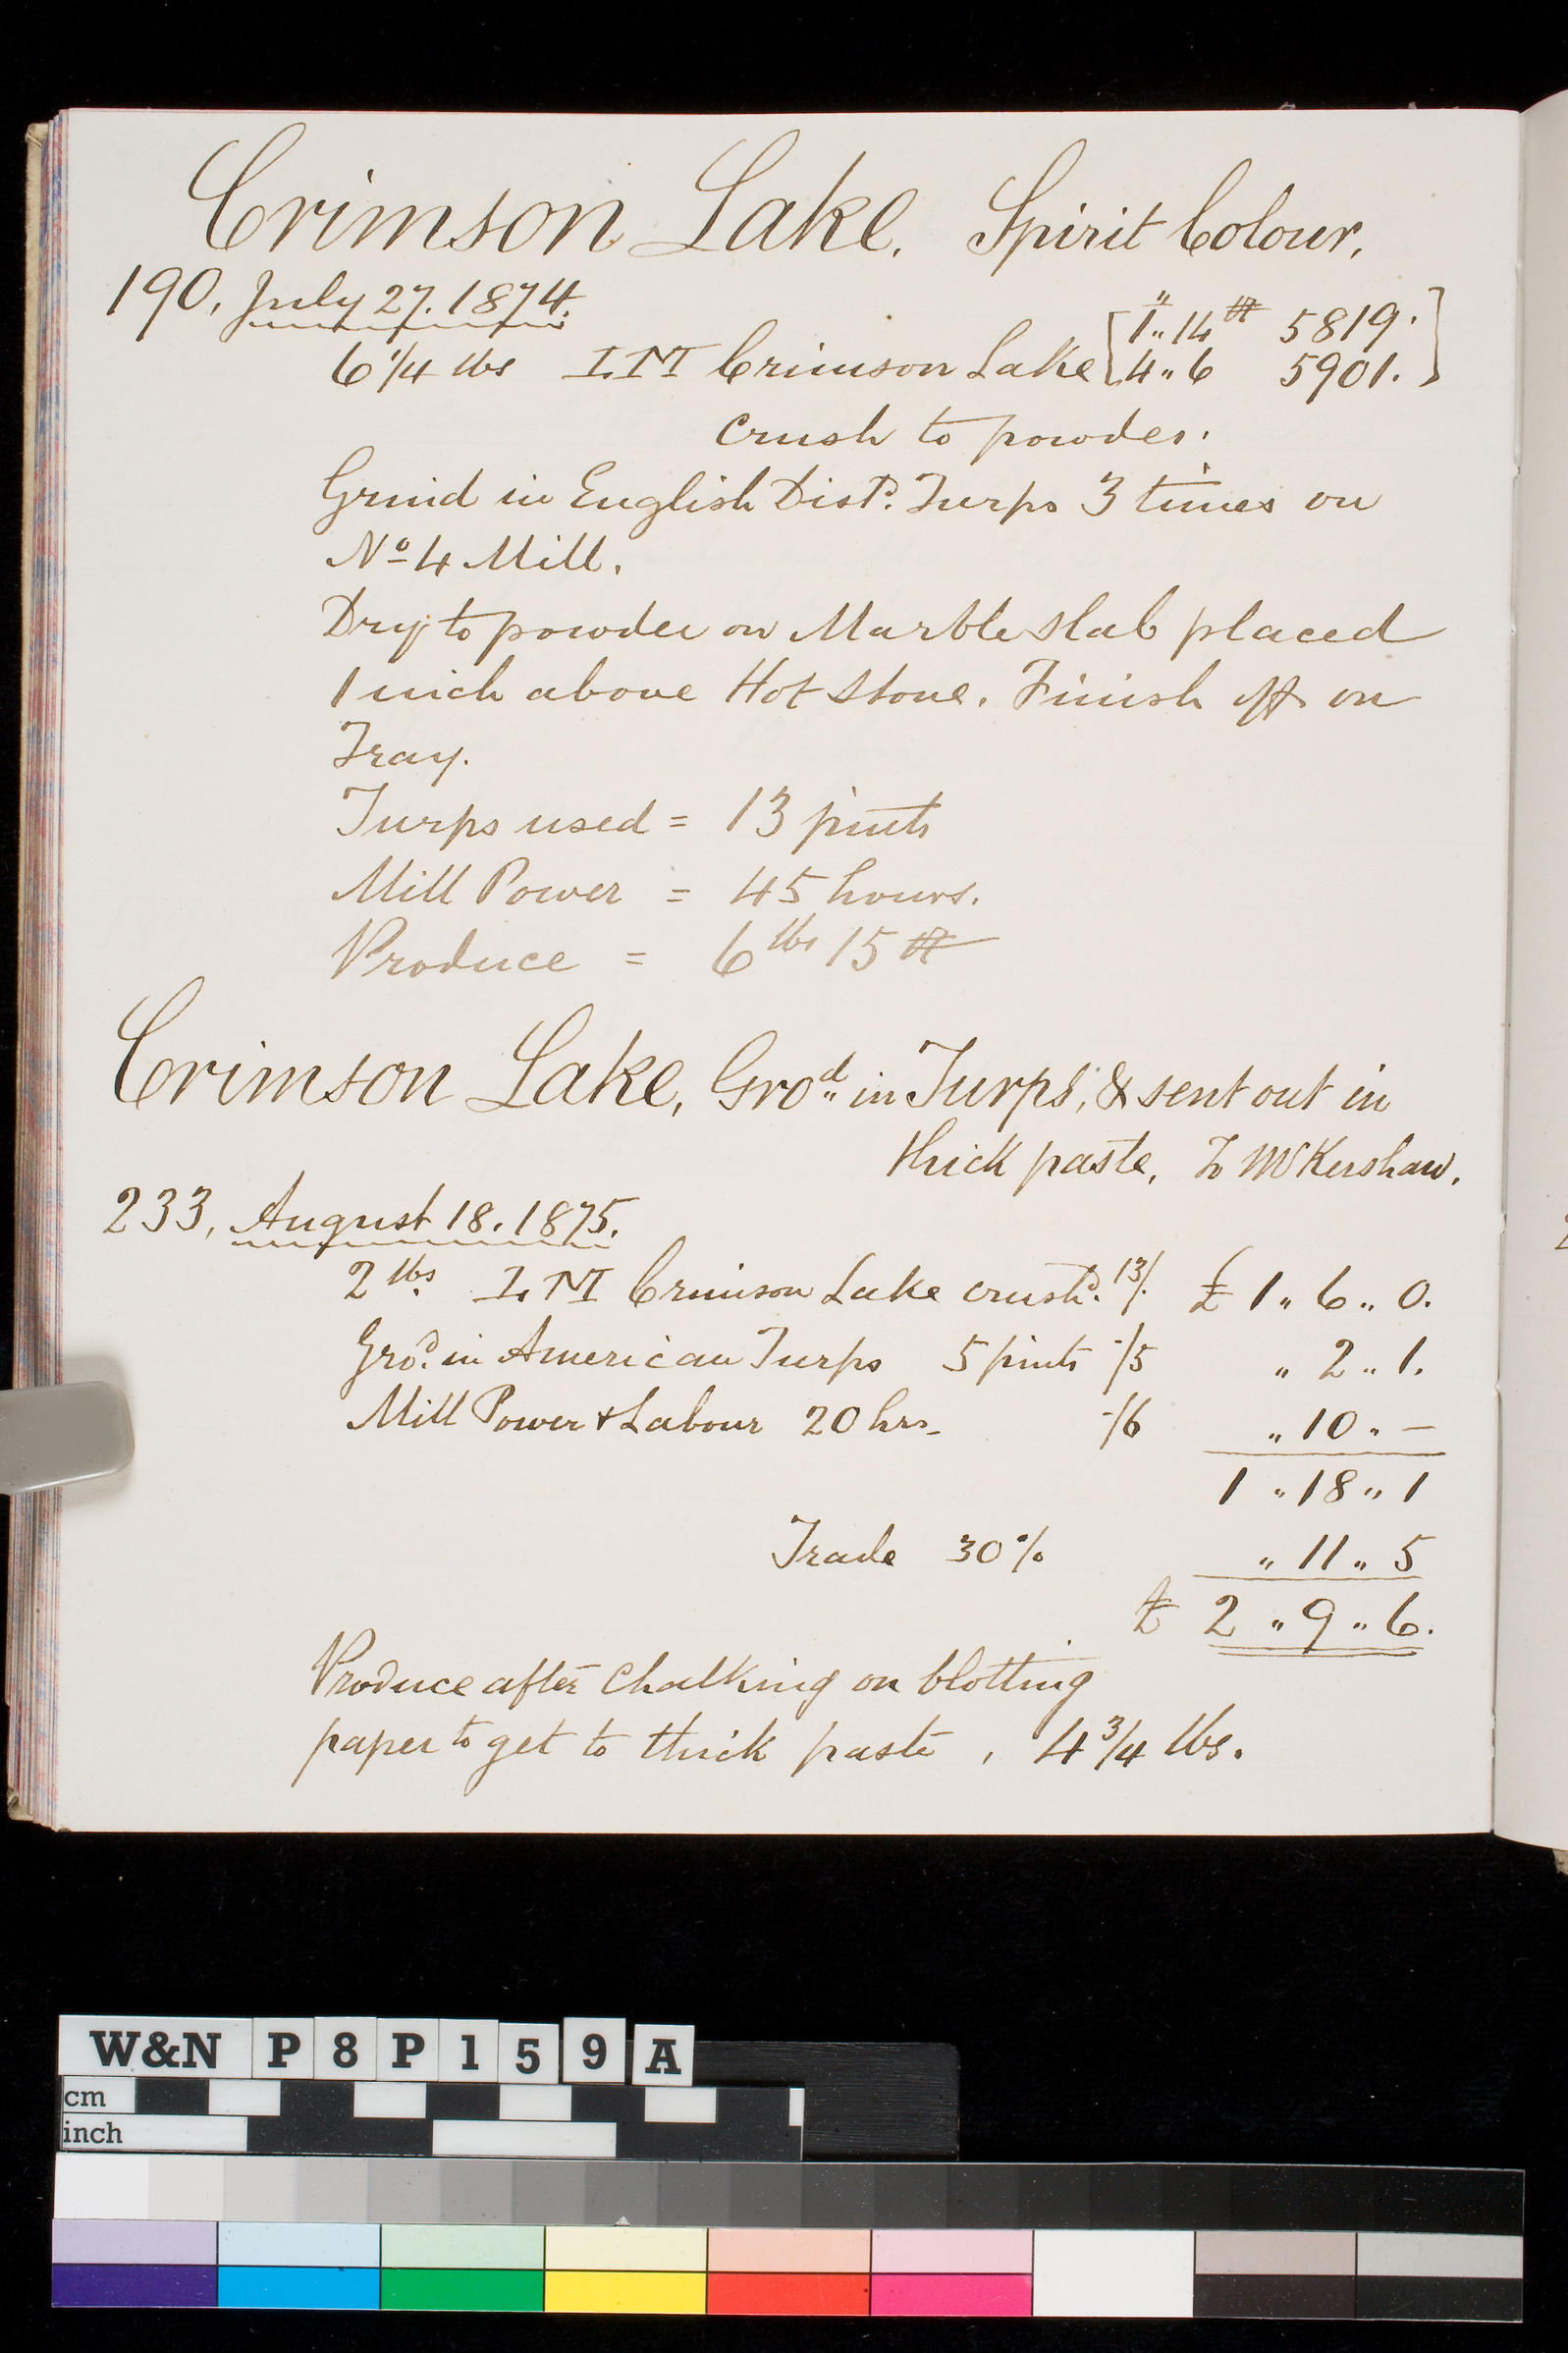 Crimson Lake. Spirit Colour.
190. July 27. 1874.
1 " 14 5819.
6 1/4 lbs Crimson Lake 4 " 6 5901.
crush to powder.
Grind in English Distd. Turps 3 times on
No 4 Mill.
Dry to powder on Marble slab placed
1 inch above Hot Stone. Finish off on
Tray.
Turps used = 13 pints
Mill Power = 45 hours.
Produce = 6 lbs 15
Crimson Lake, Grod in Turps, & sent out in
thick paste, To Mr Kershaw.
233, August 18. 1875.
2 lbs. Crimson Lake crushd. 13/. £ 1 " 6 " 0.
Grod. in American Turps 5 pints -/5 " 2 " 1.
Mill Power & Labour 20 hrs. -/6 " 10 " —
1 " 18 " 1
Trade 30% " 11 " 5
£ 2 " 9 " 6.
Produce after Chalking on blotting
paper to get to thick paste, 4 3/4 lbs.
W&N P8P159A
cm
inch